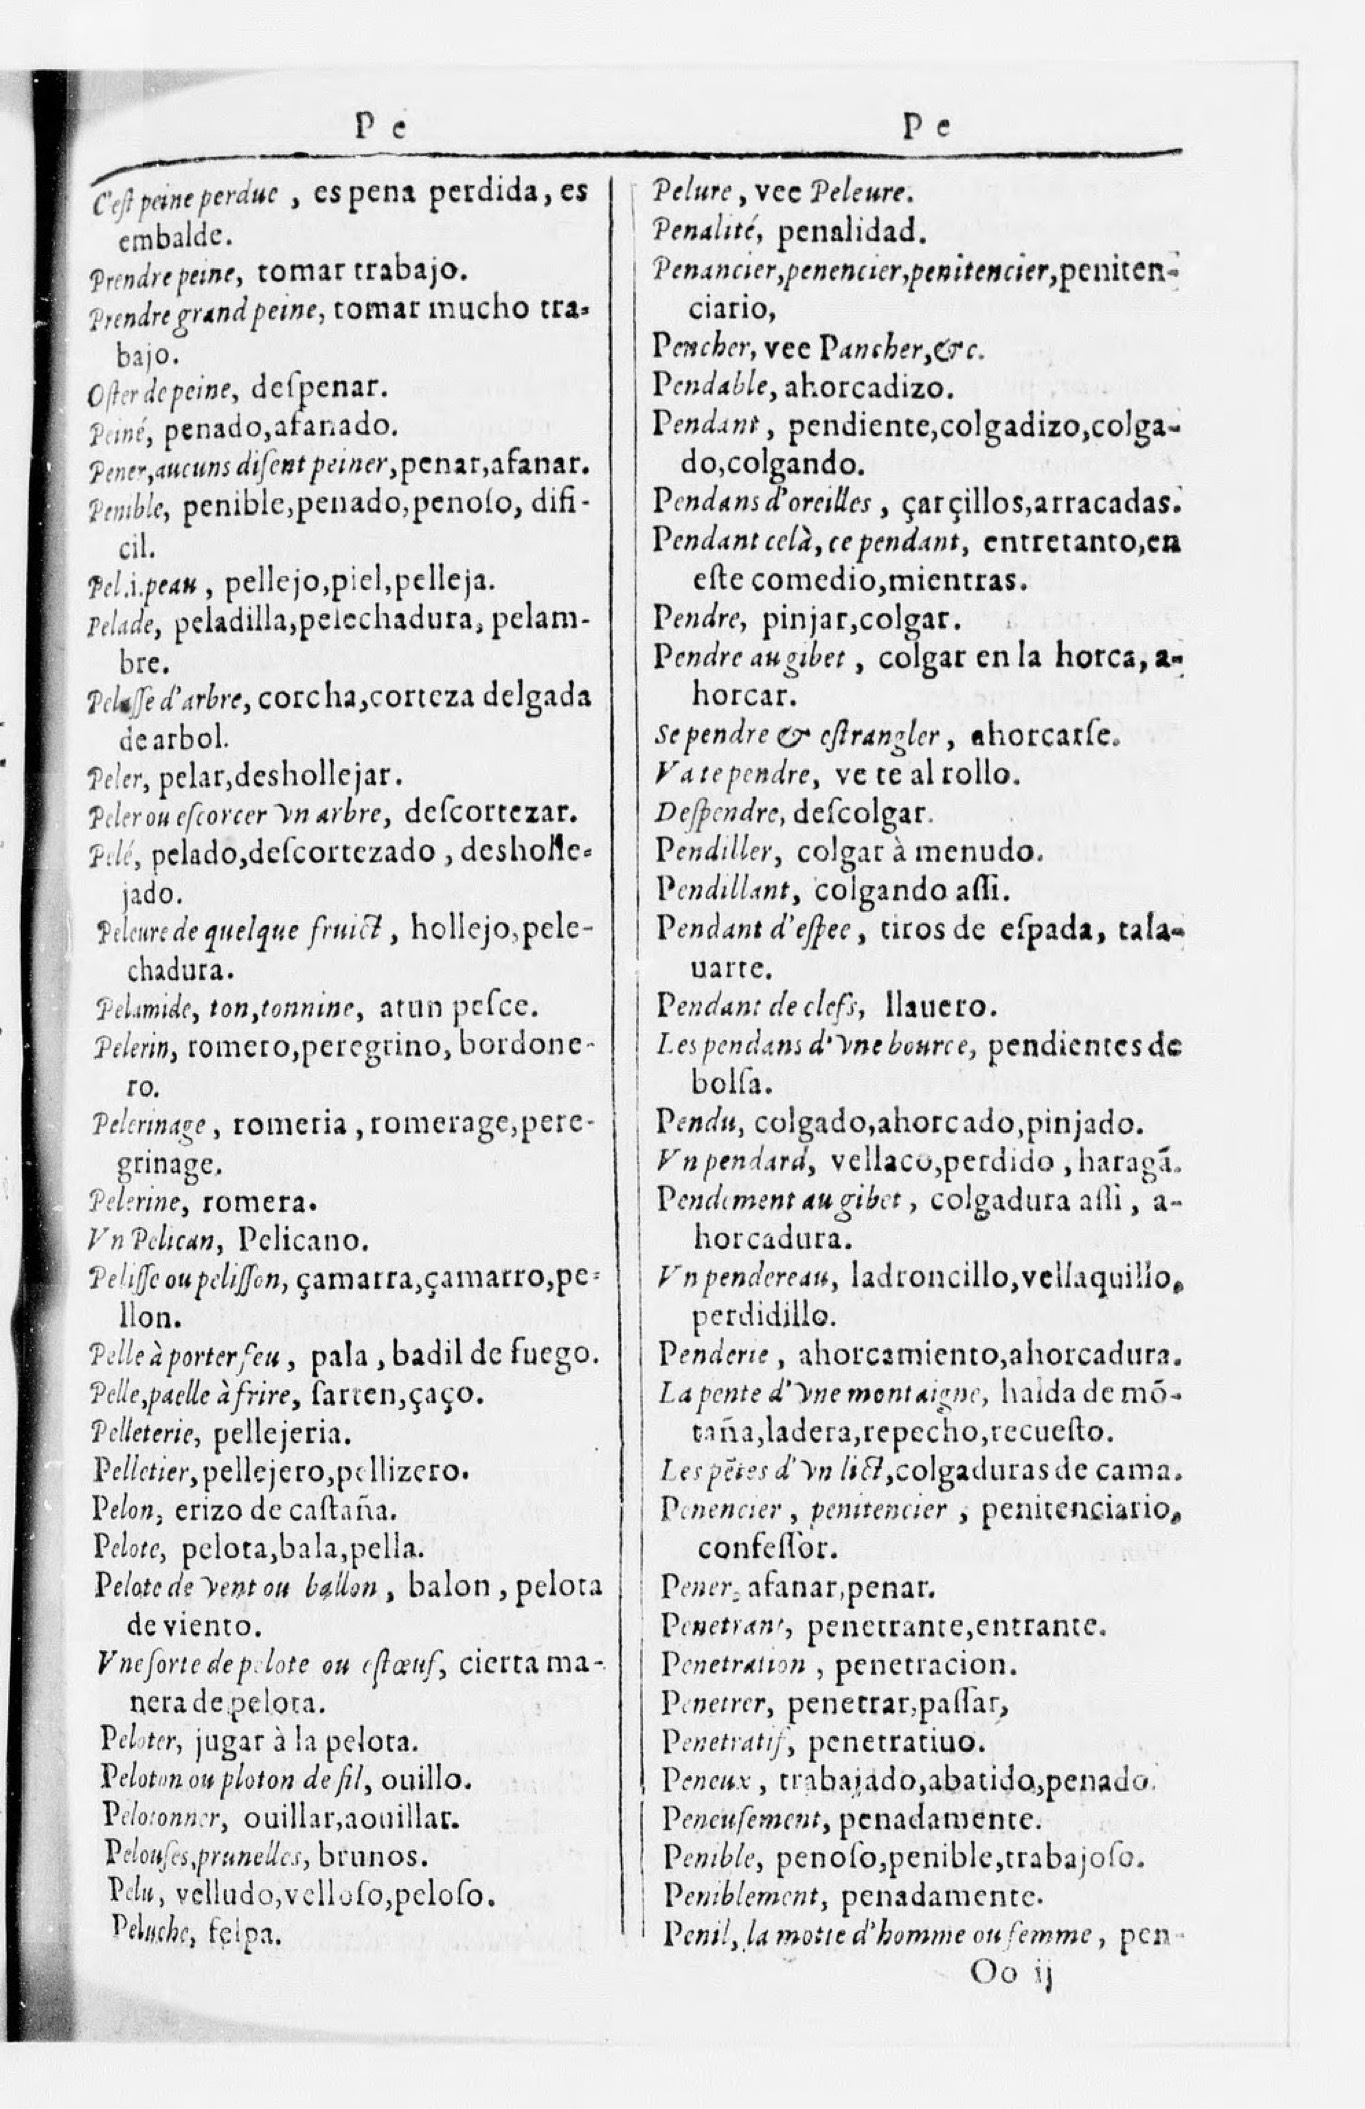 P e
C'eſt peine perdue, es pena perdida, es
embalde.
Prendre peine, tomar trabajo.
Prendre grand peine, tomar mucho tra-
bajo.
Oſter de peine, deſpenar.
Peiné, penado, afanado.
Pener, aucuns diſent peiner, penar, afanar.
Penible, penible, penado, penoſo, difi-
cil.
Pel .i. peau, pellejo, piel, pelleja.
Pelade, peladilla, pelechadura, pelam-
bre.
Pelaſſe d'arbre, corcha, corteza delgada
de arbol.
Peler, pelar, deshollejar.
Peler ou eſcorcer vn arbre, deſcortezar.
Pelé, pelado, deſcortezado, desholle-
jado.
Peleure de quelque fruict, hollejo, pele-
chadura.
Pelamide, ton, tonnine, atun peſce.
Pelerin, romero, peregrino, bordone-
ro.
Pelerinage, romeria, romerage, pere-
grinage.
Pelerine, romera.
Vn Pelican, Pelicano.
Peliſſe ou peliſſon, çamarra, çamarro, pe-
llon.
Pelle à porter feu, pala, badil de fuego.
Pelle, paelle à frire, ſarten, çaço.
Pelleterie, pellejeria.
Pelletier, pellejero, pellizero.
Pelon, erizo de caſtaña.
Pelote, pelota, bala, pella.
Pelote de vent ou ballon, balon, pelota
de viento.
Vne ſorte de pelote ou eſtœuf, cierta ma-
nera de pelota.
Peloter, jugar à la pelota.
Peloton ou ploton de fil, ouillo.
Pelotonner, ouillar, aouillar.
Pelouſes, prunelles, brunos.
Pelu, velludo, velloſo, peloſo.
Peluche, felpa.
P e
Pelure, vee Peleure.
Penalité, penalidad.
Penancier, penencier, penitencier, peniten-
ciario,
Pencher, vee Pancher, &c.
Pendable, ahorcadizo.
Pendant, pendiente, colgadizo, colga-
do, colgando.
Pendans d'oreilles, çarçillos, arracadas.
Pendant celà, ce pendant, entretanto, en
eſte comedio, mientras.
Pendre, pinjar, colgar.
Pendre au gibet, colgar en la horca, a-
horcar.
Se pendre & eſtrangler, ahorcarſe.
Va te pendre, ve te al rollo.
Deſpendre, deſcolgar.
Pendiller, colgar à menudo.
Pendillant, colgando aſſi.
Pendant d'eſpee, tiros de eſpada, tala-
uarte.
Pendant de clefs, llauero.
Les pendans d'vne bource, pendientes de
bolſa.
Pendu, colgado, ahorcado, pinjado.
Vn pendard, vellaco, perdido, haragã.
Pendement au gibet, colgadura aſſi, a-
horcadura.
Vn pendereau, ladroncillo, vellaquillo,
perdidillo.
Penderie, ahorcamiento, ahorcadura.
La pente d'vne montaigne, halda de mõ-
taña, ladera, repecho, recueſto.
Les pẽtes d'vn lict, colgaduras de cama.
Penencier, penitencier, penitenciario,
confeſſor.
Pener, afanar, penar.
Penetrant, penetrante, entrante.
Penetration, penetracion.
Penetrer, penetrar, paſſar,
Penetratif, penetratiuo.
Peneux, trabajado, abatido, penado.
Peneuſement, penadamente.
Penible, penoſo, penible, trabajoſo.
Peniblement, penadamente.
Penil, la motte d'homme ou femme, pen-
Oo ij